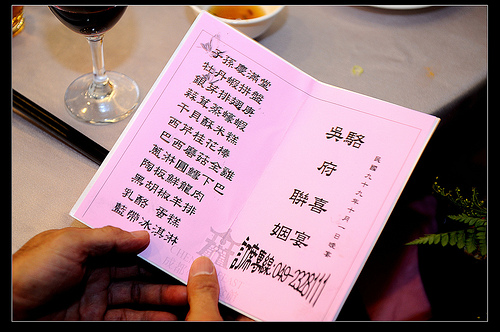 吳駱
府
聯喜
姻宴
民國九十九年十月一日晚宴
子孫慶滿堂
牡丹蝦拼盤
銀芽排翅唐
蒜茸蒸蠔蝦
干貝酥米糕
西芹桂花樽
巴西蘑菇全雞
蔥淋圓鱈下巴
陶板鮮龍肉
黑胡椒羊排
乳酪 蛋糕
藍帶冰淇淋
訂席專線:049-2328111